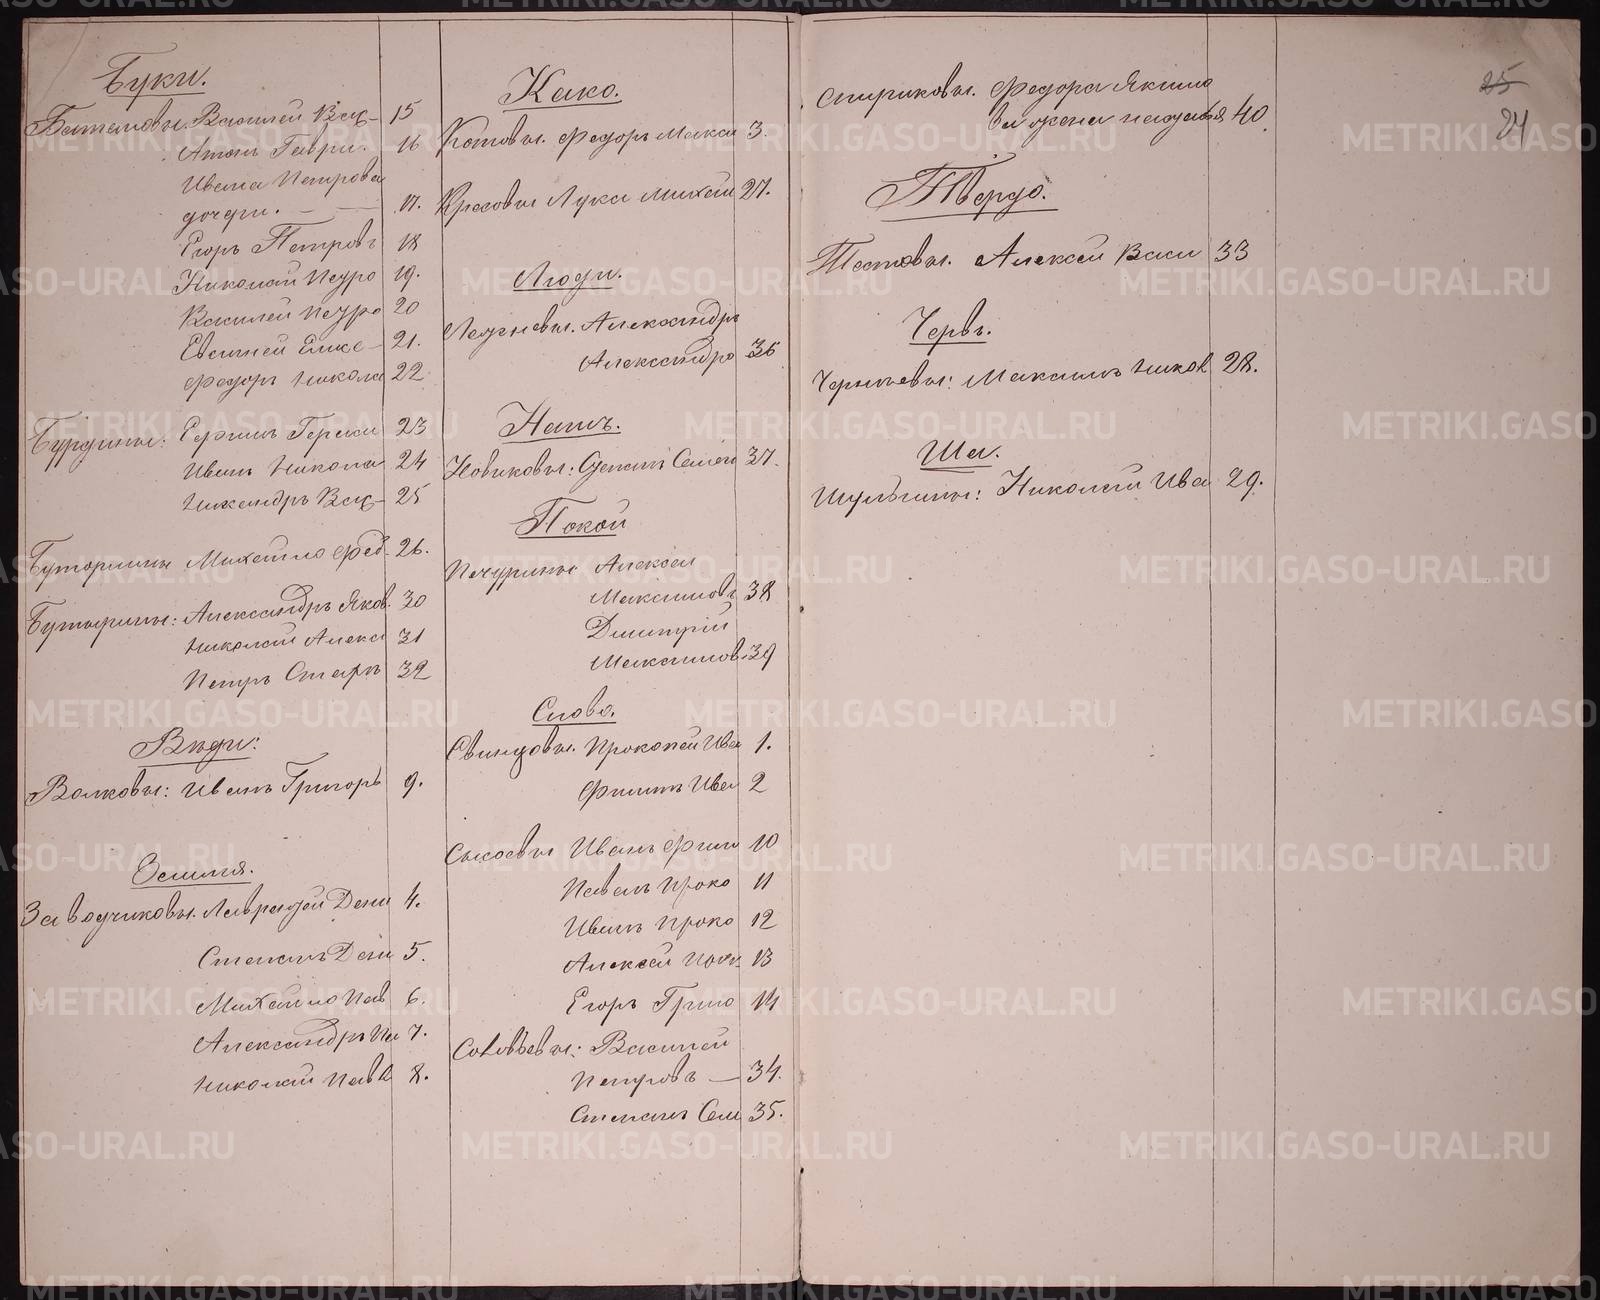 Буки.
Батеновы. Василей Вас- 15
Антон Гаври. 16
Ивана Петрова
дочери. — — 17.
Егоръ Петровъ 18
Николай Петро 19.
Василей Петро 20
Евгеней 21.
Федоръ Никола 22
Бурдины: Гераси 23
Иванъ Никола 24
Никандръ Вас- 25
Буторины Михайло Фед. 26.
Бутырины: Александръ Яков. 30
Николай Алекс 31
Петръ 32
Вѣди:
Волковы: Иванъ Григорь 9.
Земля.
Заводчиковы. Лаврентей Дени 4.
Степанъ Дени 5.
Михайло Пав 6.
Александръ Па 7.
Николай Павл 8.
Како.
Котовы. Федоръ Макси 3.
Красовы Лука Михай 27.
Люди.
Александръ
Александро 36
Нашъ.
Новиковы: Степанъ Семен 37.
Покой
Печурины Алексей
Максимовъ 38
Дмитрій
Максимов. 39
Слово.
Свиндовы. Прокопей Ива 1.
Филипъ Ива 2
Сысоевы Иванъ Фили 10
Павелъ Проко 11
Иванъ Проко 12
Алексей Прок 13
Егоръ Григо 14
Соловьевы: Василей
Петровъ — 34.
Степанъ Сем 35.
Спириковы. Федора Якимо
ва жена 40.
Твердо.
Титовы. Алексей Васи 33
Червь.
Черныевы: Максимъ Никол 28.
Ша.
Шульгины: Николай Ива 29.
25
24
METRIKI.GASO-URAL.RU